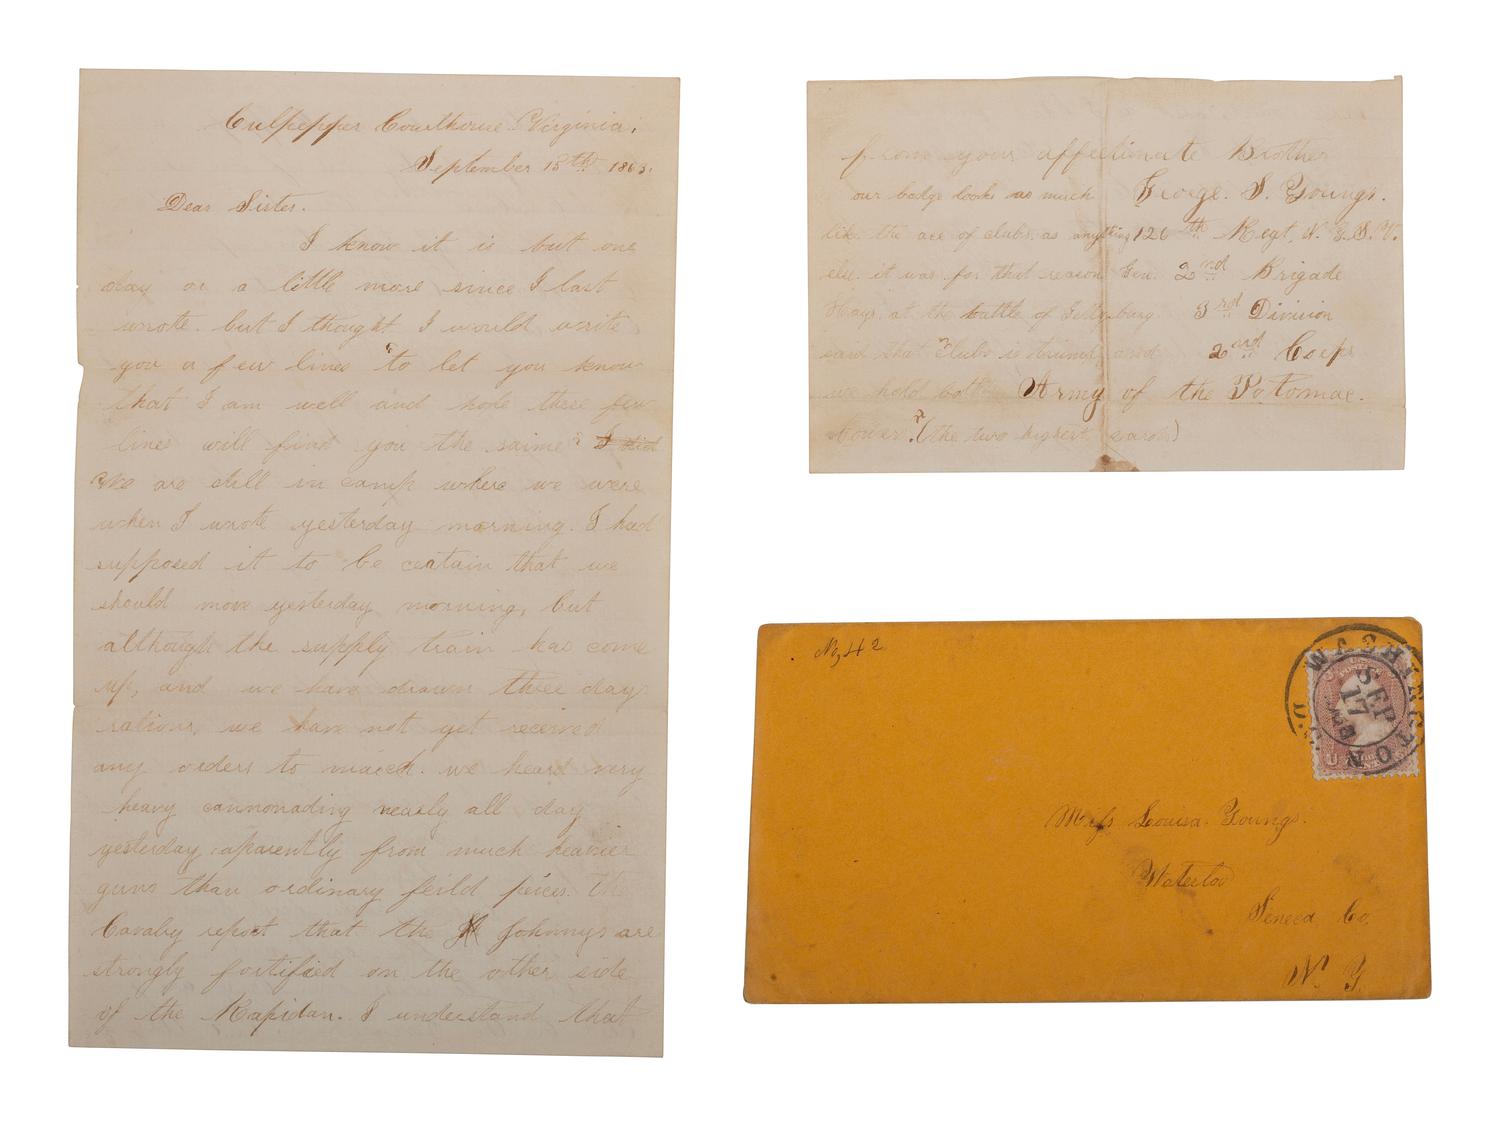 Culpepper Courthouse Virginia,
September 15th 1863.
Dear Sister.
I know it is but one
day or a little more since I last
wrote. but I thought I would write
you a few lines to let you know
that I am well and hope these few
lines will find you the saime I did
We are still in camp where we were
when I wrote yesterday morning. I had
supposed it to be certain that we
should move yesterday morning, but
although the supply train has come
up, and we have drawn three days
rations, we have not yet received
any orders to march. we heard very
heavy cannonading nearly all day
yesterday aparently from much heavier
guns than ordinary feild peices. The
Cavalry report that the Johnnys are
strongly fortified on the other side
of the Rapidan. I understand that
from your affectinate Brother
George. S. Youngs.
126th Regt, N. Y. S. V.
2nd Brigade
3rd Division
2nd Corps
Army of the Potomac.
our badge looks as much
like the ace of clubs, as anything
else. it was for that reason Gen.
Hays. at the battle of Gettysburg
said that Clubs is trums and
we hold both
Bowers. (the two highest cards)
No 42
WASHINGTON D.C.
SEP 17
Miss Louisa Youngs.
Waterloo
Seneca Co.
N. Y.